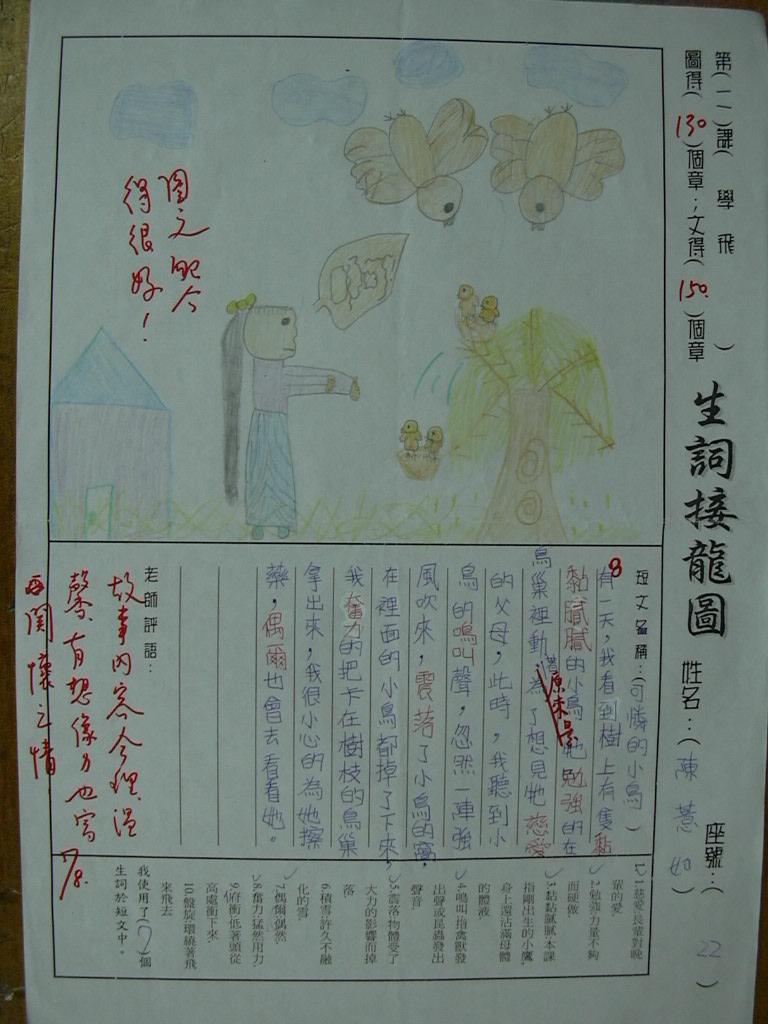 第(一一)課(學飛)
圖得(130)個章；文得(150)個章
生詞接龍圖
姓名：(陳薏如)
座號：(22)
圖文配合
得很好！
短文名稱：(可憐的小鳥)
有一天，我看到樹上有隻黏
黏膩膩的小鳥牠勉強的在
鳥巢裡動著，原來是為了想見牠慈愛
的父母，此時，我聽到小
鳥的鳴叫聲，忽然一陣強
風吹來，震落了小鳥的窩，
在裡面的小鳥都掉了下來，
我奮力的把卡在樹枝的鳥巢
拿出來，我很小心的為牠擦
藥，偶爾也會去看看牠。
老師評語：
故事內容合理、溫
馨、有想像力也富
關懷之情
7/8.
1.慈愛：長輩對晚
輩的愛
2.勉強：力量不夠
而硬做.
3.黏黏膩膩：本課
指剛出生的小鷹,
身上還沾滿母體
的體液.
4.鳴叫：指禽獸發
出聲或昆蟲發出
聲音.
5.震落：物體受了
大力的影響而掉
落.
6.積雪：許久不融
化的雪.
7.偶爾：偶然.
8.奮力：猛然用力.
9.俯衝：低著頭從
高處衝下來.
10.盤旋：環繞著飛
來飛去
我使用了(7)個
生詞於短文中。